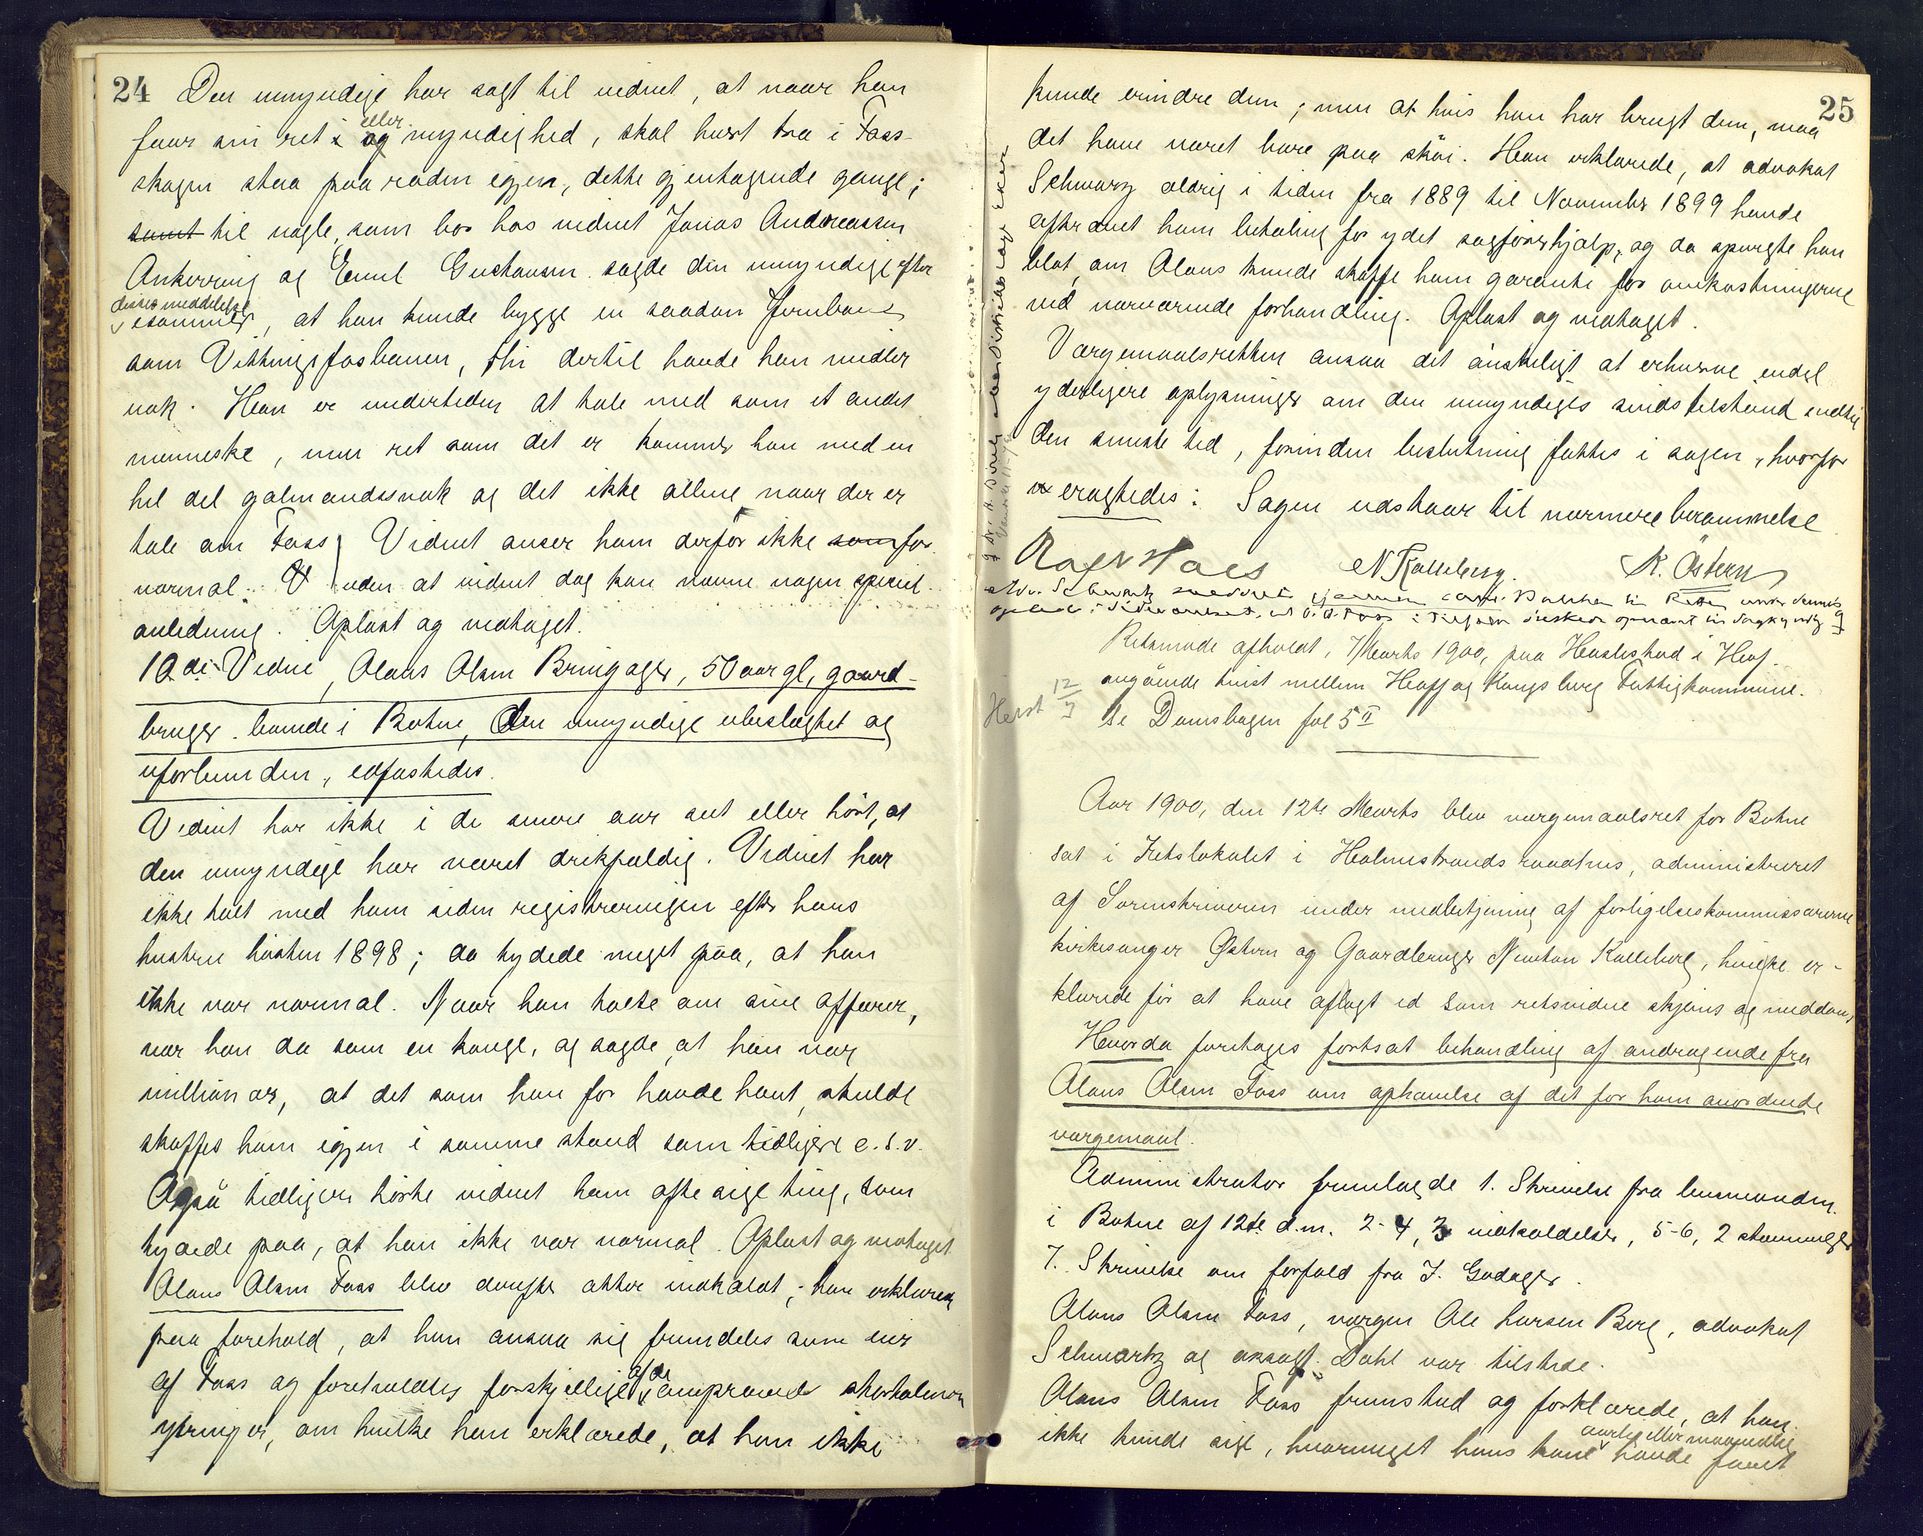 24
Den umyndige har sagt til vidnet, at naar han
faar sin ret og eller myndighed, skal hvert træ i Foss-
skogen staa paa roden igjen, dette gjentagende gange;
samt til nogle, som bor hos vidnet Jonas Andreassen
Ankerring og Emil Gustavsen sagde den umyndige efter
disses meddelelse, at han kunde bygge en saadan Jernbane
som Vittingfosbanen, thi dertil havde han midler
nok. Han er undertiden at tale med som et andet
menneske, men ret som det er kommer han med en
hel del galmandssnak og det ikke alene naar der er
tale om Foss. Vidnet anser ham derfor ikke som for
normal. uden at vidnet dog kan nævne nogen speciel
anledning. Oplæst og vedtaget.
10de Vidne, Olaus Olsen Bringager, 50 aar gl, gaard-
bruger boende i Botne, den umyndige ubeslægtet og
uforbunden, edfæstedes.
Vidnet har ikke i de senere aar set eller hørt, at
den umyndige har været drikfældig. Vidnet har
ikke talt med ham siden registreringen efter hans
hustru høsten 1898; da tydede meget paa, at han
ikke var normal. Naar han talte om sine affærer,
var han da som en konge, og sagde, at han var
millionær, at det som han før havde havt, skulde
skaffes ham igjen i samme stand som tidligere o.s.v.
Også tidligere hørte vidnet ham ofte sige ting, som
tydede paa, at han ikke var normal. Oplæst og vedtaget
Olaus Olsen Foss blev derefter atter indkaldt; han erklærede
paa forehold, at han ansaa sig fremdeles som eier
af Foss og foreholdtes forskjellige af de omprovede stortalende
ytringer, om hvilke han erklærede, at han ikke
25
kunde erindre dem; men at hvis han har brugt dem, maa
det have været bare paa skøi. Han erklærede, at advokat
Schwarz aldrig i tiden fra 1889 til November 1899 havde
affordret ham betaling for ydet sagførerhjælp, og da spurgte han
blot, om Olaus kunde skaffe ham garanti for omkostningerne
ved nærværende forhandling. Oplæst og vedtaget.
Værgemaalsretten ansaa det ønskeligt at erhverve endel
yderligere oplysninger om den umyndiges sindstilstand indtil
den seneste tid, forinden beslutning fattes i sagen, hvorfor
eragtedes: Sagen udstaar til nærmere berammelse
N Kalleberg. K. Østern
Retsmøde afholdt, 7 Marts 1900, paa Hvalestad i Hof.
angående tvist mellem Hof og Kongsberg Fattigkommune.
Se Domsbogen fol 5 II
Hvist 12/3
Aar 1900, den 12te Marts blev værgemaalsret for Botne
sat i Retslokalet i Holmestrands raadhus, administreret
af Sorenskriveren under medbetjening af forligelseskommissærerne
kirkesanger Østern og Gaardbruger Newton Kalleberg, hvilke er-
klærede før at have aflagt ed som retsvidne skjøns og meddoms
Hvorda foretoges fortsat behandling af andragende fra
Olaus Olsen Foss om ophævelse af det for ham anordnede
værgemaal.
Administrator fremlagde 1. Skrivelse fra lensmanden
i Botne af 12te d.m. 2-4, 3 indkaldelser, 5-6, 2 stevninger
7. Skrivelse om forfald fra J. Godager.
Olaus Olsen Foss, værgen Ole Larsen Berg, advokat
Schwartz og Dahl var tilstede.
Olaus Olsen Foss fremstod og forklarede, at han
ikke kunde sige, hvormeget hans kone aarlig eller maanedlig havde faaet